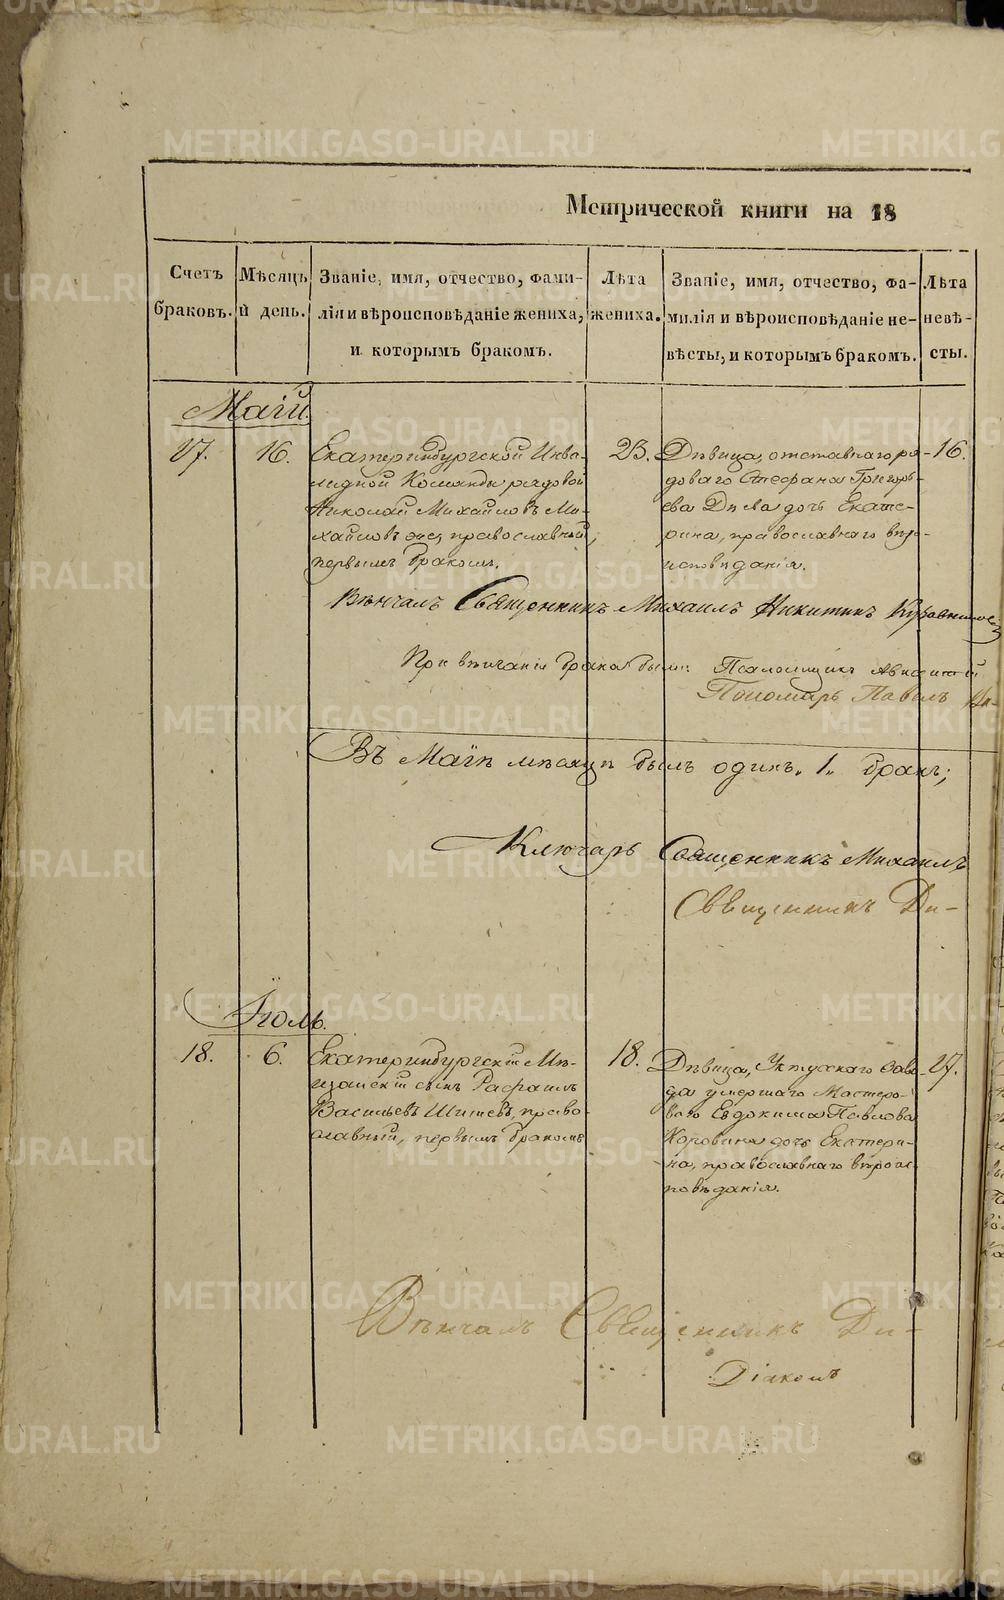 METRIKI.GASO-URAL.RU
Метрической книги на 18
Счетъ браковъ.
Мѣсяцъ й день.
Званіе, имя, отчество, фами-
лія и вѣроисповѣданіе жениха,
и которымъ бракомъ.
Лѣта жениха.
Званіе, имя, отчество, фа-
милія и вѣроисповѣданіе не-
вѣсты, и которымъ бракомъ.
Лѣта невѣ-
сты.
Маій.
17. 16.
Екатеринбургской Инва-
лидной Команды рядовой
Николай Михайловъ Ми-
хайловъ православный,
первымъ бракомъ.
23.
Дѣвица, отставнаго ря-
доваго Стефана Григорь-
ева дочь Екате-
рина, православнаго вѣро-
исповѣданія.
16.
Вѣнчалъ Священникъ Михаилъ Никитинъ
При вѣнчаніи брака были: Псаломщикъ
Пономарь Павелъ
Въ Маіѣ мѣсяцѣ былъ одинъ „1„ бракъ;
Ключарь Священникъ Михаилъ
Священникъ Ди-
Іюль.
18. 6.
Екатеринбургскій Мѣ-
щанскій сынъ Рафаилъ
Васильевъ Шишевъ, право-
славный, первымъ бракомъ
18.
Дѣвица, Уктускаго Заво-
да умершаго Мастеро-
ваго Евдокима Павлова
Коровина дочь Екатери-
на, православнаго вѣроис-
повѣданія.
17.
Вѣнчалъ Священникъ Ди-
Діаконъ